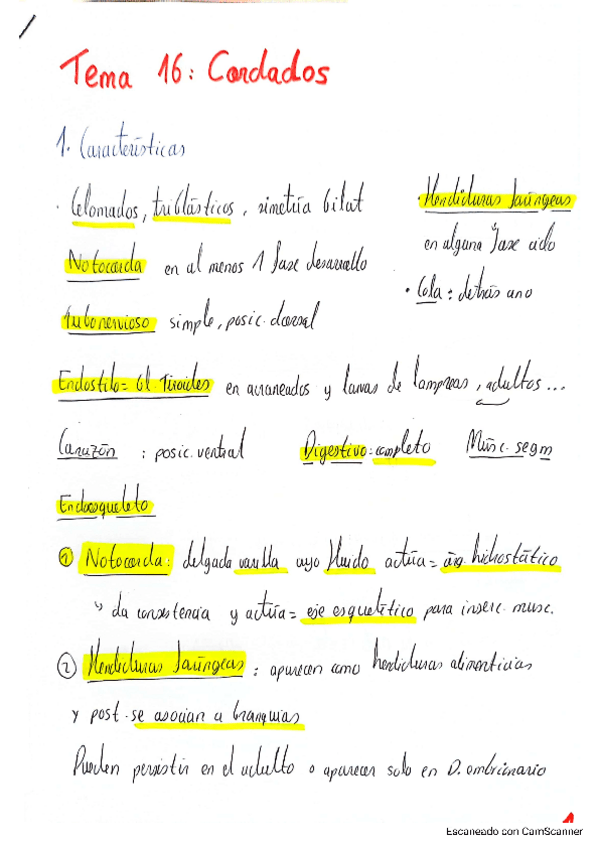 Tema 16: Cordados
1. Características
· Celomados, triblásticos, simetría bilat
Notocorda en al menos 1 fase desarrollo
tubo nervioso simple, posic. dorsal
· Hendiduras faríngeas
en alguna fase ciclo
· Cola: detrás ano
Endostilo = Gl. Tiroides en acraneados y larvas de lampreas, adultos...
Corazón : posic. ventral Digestivo: completo Músc. segm
Endoesqueleto
① Notocorda: delgada varilla cuyo fluido actúa = órg. hidrostático
↳ da consistencia y actúa = eje esquelético para inserc. musc.
② Hendiduras faríngeas : aparecen como hendiduras alimenticias
y post. se asocian a branquias
Pueden persistir en el adulto o aparecer solo en D. embrionario
1
Escaneado con CamScanner